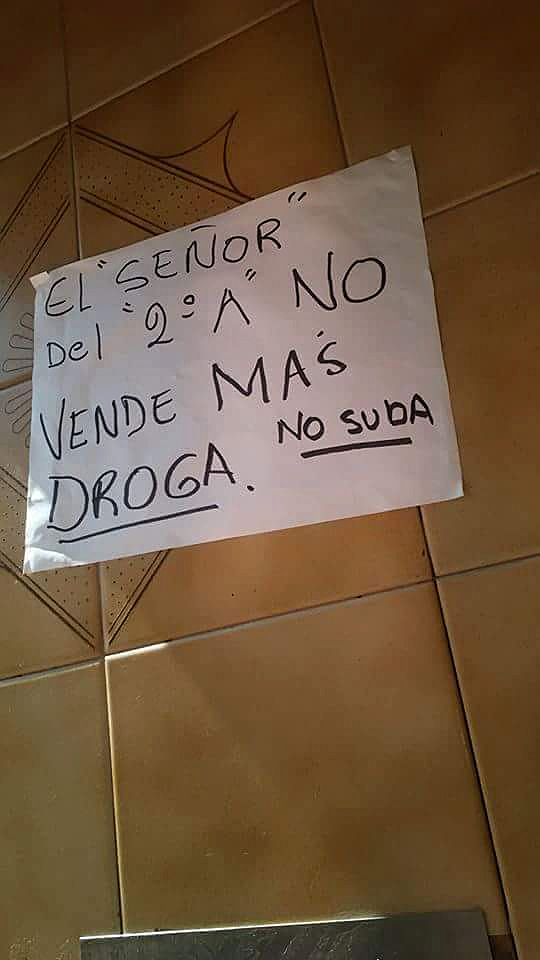 EL "SEÑOR"
Del "2º A" NO
VENDE MAS
DROGA. NO SUbA